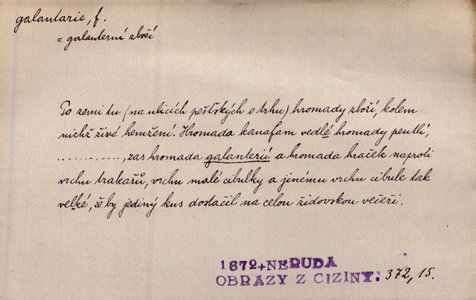 galantarie, f.
= galanterní zboží
Po zemi tu (na ulicích pešťských o trhu) hromady zboží, kolem
nichž živé hemžení. Hromada kanafasu vedlé hromady pentlí,
............, zas hromada galanterií a hromada hraček naproti
vrchu trakařů, vrchu malé cibulky a jinému vrchu cibule tak
velké, že by jediný kus dostačil na celou židovskou večeři.
1872+NERUDA
OBRAZY Z CIZINY. 372, 15.